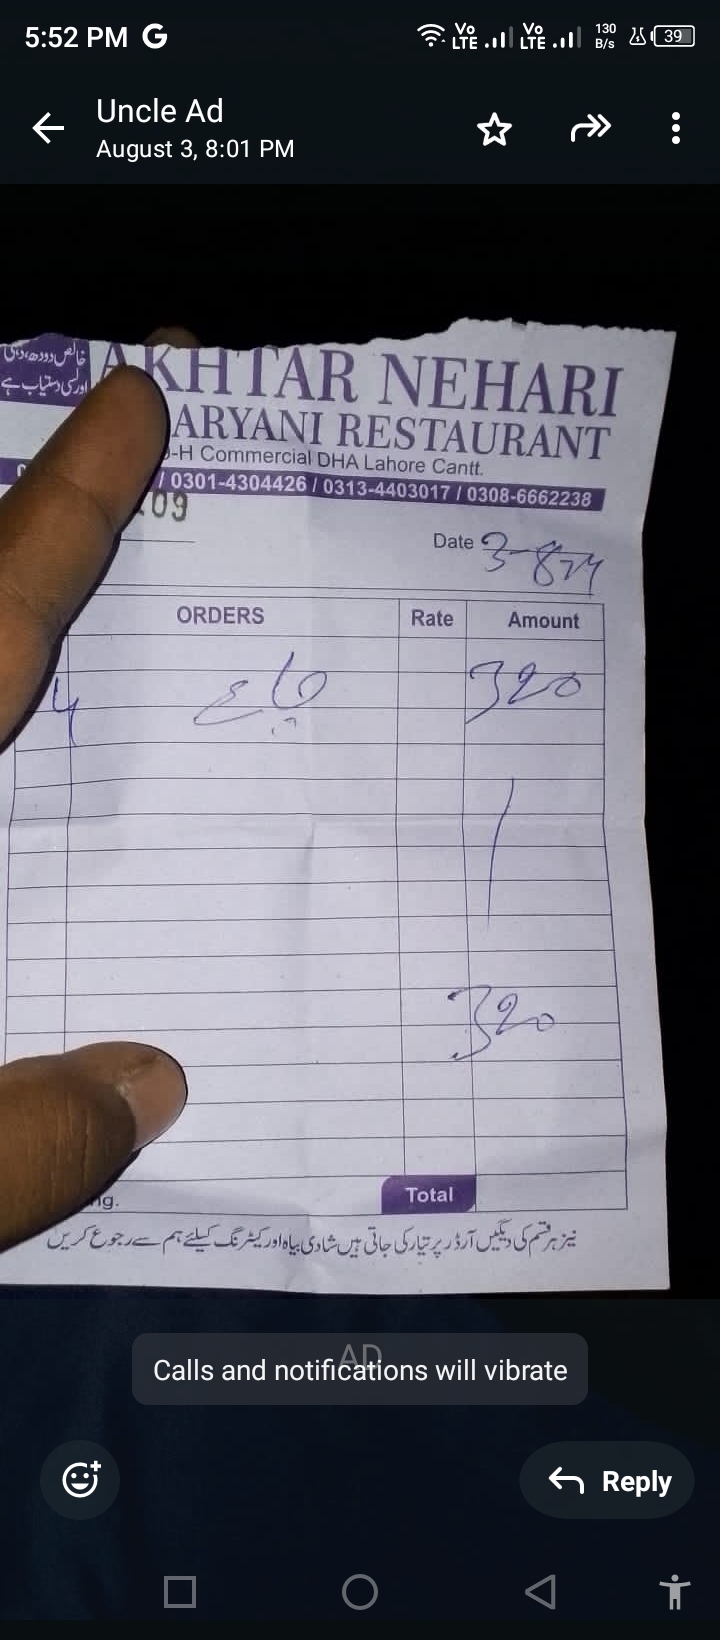 5:52 PM G Vo LTE Vo LTE 130 B/s 39
Uncle Ad
August 3, 8:01 PM
خالص دودھ دہی
اور لسی دستیاب ہے
AKHTAR NEHARI
ARYANI RESTAURANT
-H Commercial DHA Lahore Cantt.
/ 0301-4304426 / 0313-4403017 / 0308-6662238
09
Date 3-8-24
ORDERS Rate Amount
4 چائے 320
320
ng. Total
نیز ہر قسم کی دیگیں آرڈر پر تیار کی جاتی ہیں شادی بیاہ اور کیٹرنگ کیلئے ہم سے رجوع کریں
AD
Calls and notifications will vibrate
Reply